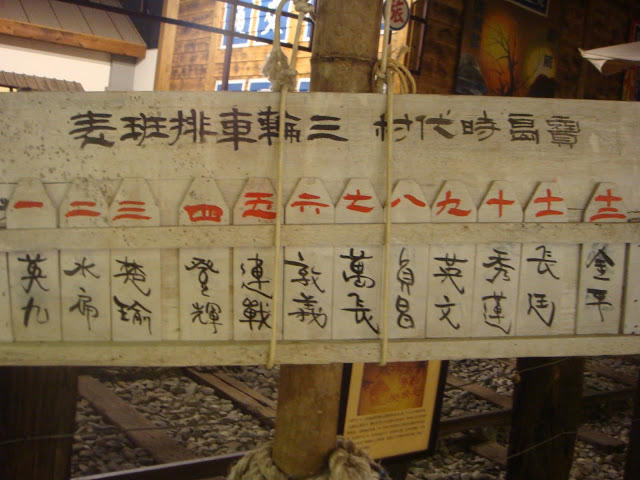 旅
寶島時代村 三輪車排班表
一 二 三 四 五 六 七 八 九 十 十一 十二
英九 水扁 楚瑜 登輝 連戰 敦義 萬長 貞昌 英文 秀蓮 長廷 金平